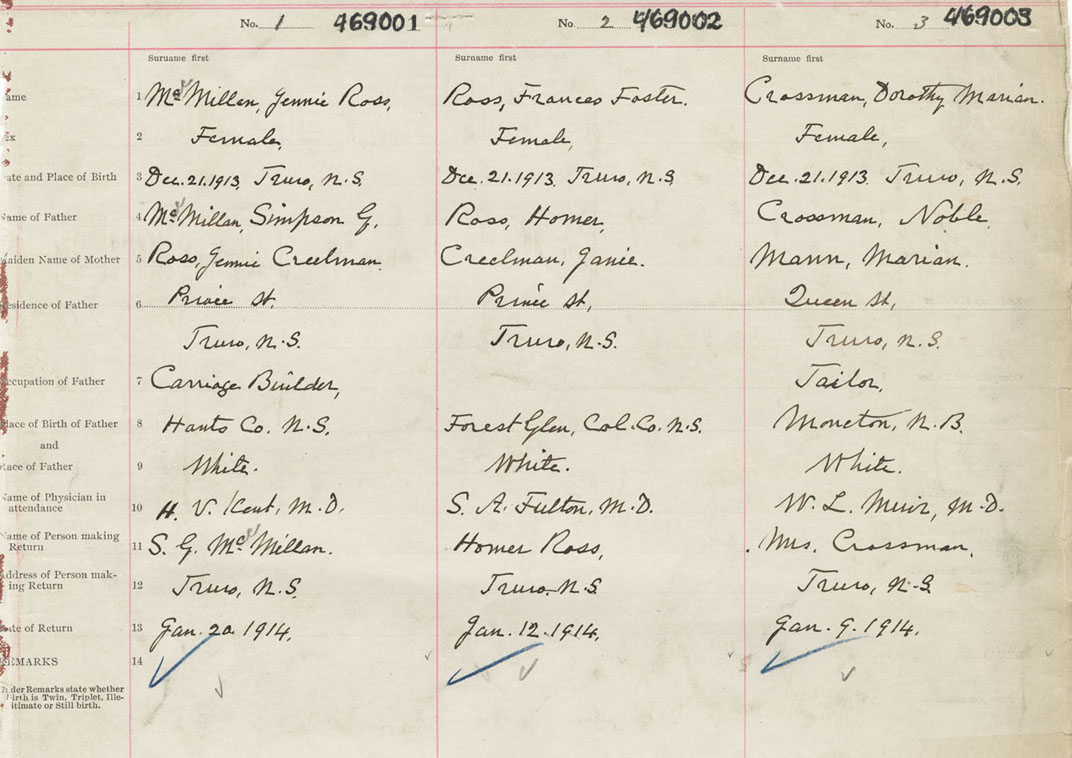 No. 1 469001 No. 2 469002 No. 3 469003
Surname first Surname first Surname first
ame 1 McMillan, Jennie Ross, Ross, Frances Foster. Crossman, Dorothy Marian.
ex 2 Female, Female, Female,
ate and Place of Birth 3 Dec. 21. 1913, Truro, N.S. Dec. 21. 1913. Truro, N.S. Dec. 21. 1913. Truro, N.S.
Name of Father 4 McMillan, Simpson G. Ross, Homer, Crossman, Noble.
Maiden Name of Mother 5 Ross, Jennie Creelman. Creelman, Janie. Mann, Marian.
esidence of Father 6 Prince St, Prince St, Queen St,
Truro, N.S. Truro, N.S. Truro, N.S.
ccupation of Father 7 Carriage Builder, Tailor,
lace of Birth of Father 8 Hants Co. N.S. Forest Glen, Col. Co. N.S. Moncton, N.B.
and
Race of Father 9 White. White. White.
Name of Physician in
attendance 10 H. V. Kent, M.D. S. A. Fulton, M.D. W. L. Muir, M.D.
Name of Person making
Return 11 S. G. McMillan. Homer Ross, Mrs. Crossman,
Address of Person mak-
ing Return 12 Truro, N.S. Truro, N.S. Truro, N.S.
ate of Return 13 Jan. 20. 1914, Jan. 12. 1914, Jan. 9. 1914.
REMARKS 14
Under Remarks state whether
Birth is Twin, Triplet, Ille-
itimate or Still birth.